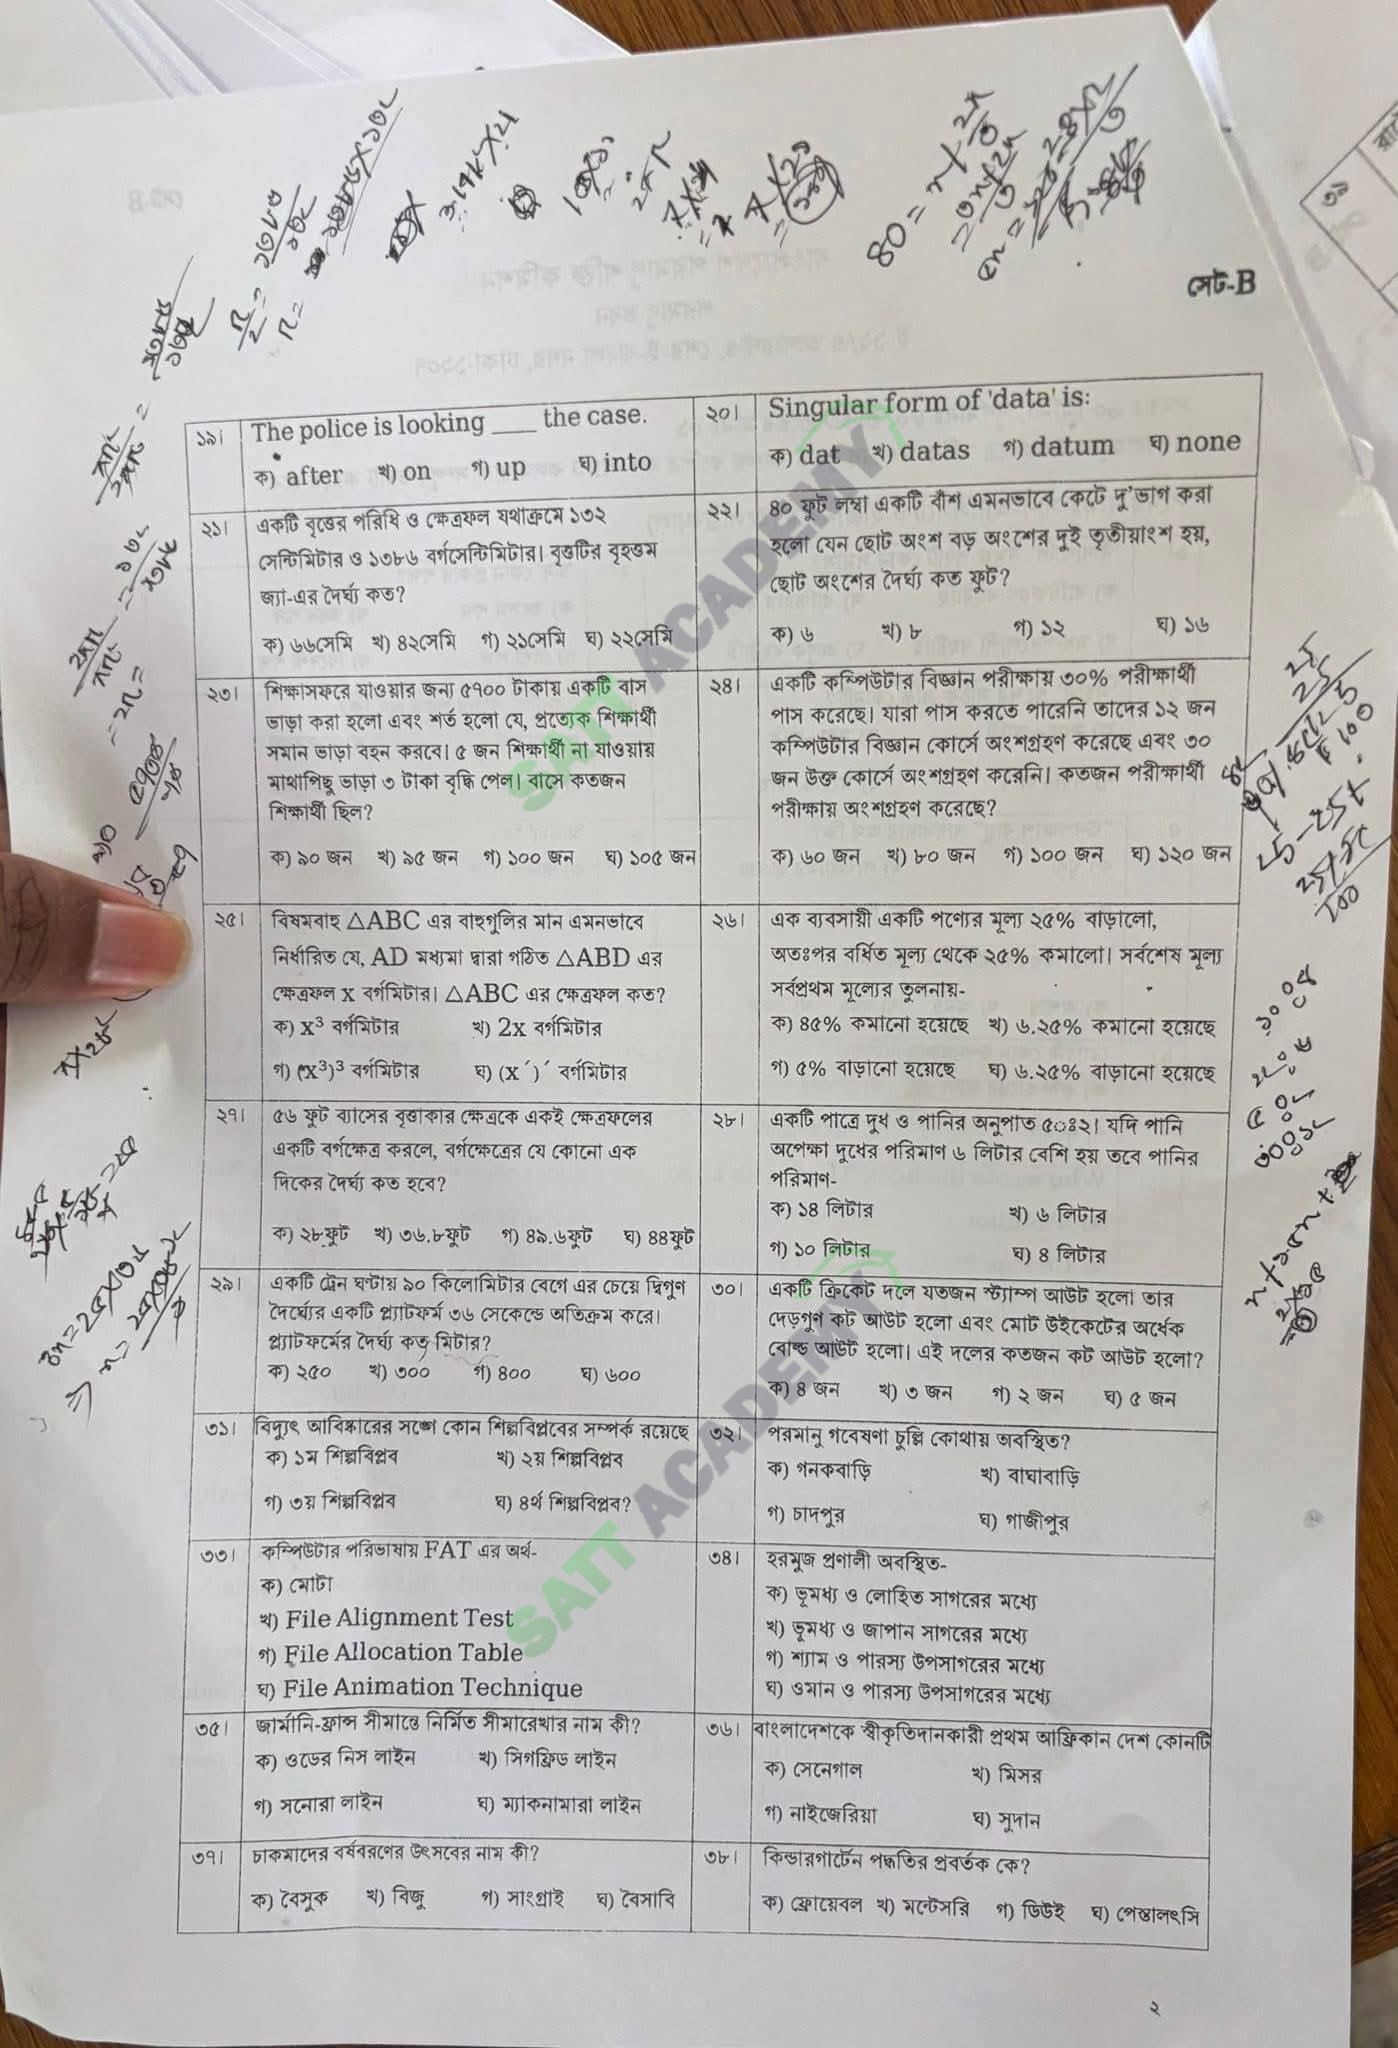 সেট-B
১৯। The police is looking ____ the case.
ক) after খ) on গ) up ঘ) into
২০। Singular form of 'data' is:
ক) dat খ) datas গ) datum ঘ) none
২১। একটি বৃত্তের পরিধি ও ক্ষেত্রফল যথাক্রমে ১৩২
সেন্টিমিটার ও ১৩৮৬ বর্গসেন্টিমিটার। বৃত্তটির বৃহত্তম
জ্যা-এর দৈর্ঘ্য কত?
ক) ৬৬সেমি খ) ৪২সেমি গ) ২১সেমি ঘ) ২২সেমি
২২। ৪০ ফুট লম্বা একটি বাঁশ এমনভাবে কেটে দু'ভাগ করা
হলো যেন ছোট অংশ বড় অংশের দুই তৃতীয়াংশ হয়,
ছোট অংশের দৈর্ঘ্য কত ফুট?
ক) ৬ খ) ৮ গ) ১২ ঘ) ১৬
২৩। শিক্ষাসফরে যাওয়ার জন্য ৫৭০০ টাকায় একটি বাস
ভাড়া করা হলো এবং শর্ত হলো যে, প্রত্যেক শিক্ষার্থী
সমান ভাড়া বহন করবে। ৫ জন শিক্ষার্থী না যাওয়ায়
মাথাপিছু ভাড়া ৩ টাকা বৃদ্ধি পেল। বাসে কতজন
শিক্ষার্থী ছিল?
ক) ৯০ জন খ) ৯৫ জন গ) ১০০ জন ঘ) ১০৫ জন
২৪। একটি কম্পিউটার বিজ্ঞান পরীক্ষায় ৩০% পরীক্ষার্থী
পাস করেছে। যারা পাস করতে পারেনি তাদের ১২ জন
কম্পিউটার বিজ্ঞান কোর্সে অংশগ্রহণ করেছে এবং ৩০
জন উক্ত কোর্সে অংশগ্রহণ করেনি। কতজন পরীক্ষার্থী
পরীক্ষায় অংশগ্রহণ করেছে?
ক) ৬০ জন খ) ৮০ জন গ) ১০০ জন ঘ) ১২০ জন
২৫। বিষমবাহু △ABC এর বাহুগুলির মান এমনভাবে
নির্ধারিত যে, AD মধ্যমা দ্বারা গঠিত △ABD এর
ক্ষেত্রফল x বর্গমিটার। △ABC এর ক্ষেত্রফল কত?
ক) x³ বর্গমিটার খ) 2x বর্গমিটার
গ) (x³)³ বর্গমিটার ঘ) (x´)´ বর্গমিটার
২৬। এক ব্যবসায়ী একটি পণ্যের মূল্য ২৫% বাড়ালো,
অতঃপর বর্ধিত মূল্য থেকে ২৫% কমালো। সর্বশেষ মূল্য
সর্বপ্রথম মূল্যের তুলনায়-
ক) ৪৫% কমানো হয়েছে খ) ৬.২৫% কমানো হয়েছে
গ) ৫% বাড়ানো হয়েছে ঘ) ৬.২৫% বাড়ানো হয়েছে
২৭। ৫৬ ফুট ব্যাসের বৃত্তাকার ক্ষেত্রকে একই ক্ষেত্রফলের
একটি বর্গক্ষেত্র করলে, বর্গক্ষেত্রের যে কোনো এক
দিকের দৈর্ঘ্য কত হবে?
ক) ২৮ফুট খ) ৩৬.৮ফুট গ) ৪৯.৬ফুট ঘ) ৪৪ফুট
২৮। একটি পাত্রে দুধ ও পানির অনুপাত ৫ঃ২। যদি পানি
অপেক্ষা দুধের পরিমাণ ৬ লিটার বেশি হয় তবে পানির
পরিমাণ-
ক) ১৪ লিটার খ) ৬ লিটার
গ) ১০ লিটার ঘ) ৪ লিটার
২৯। একটি ট্রেন ঘণ্টায় ৯০ কিলোমিটার বেগে এর চেয়ে দ্বিগুণ
দৈর্ঘ্যের একটি প্ল্যাটফর্ম ৩৬ সেকেন্ডে অতিক্রম করে।
প্ল্যাটফর্মের দৈর্ঘ্য কত মিটার?
ক) ২৫০ খ) ৩০০ গ) ৪০০ ঘ) ৬০০
৩০। একটি ক্রিকেট দলে যতজন স্ট্যাম্প আউট হলো তার
দেড়গুণ কট আউট হলো এবং মোট উইকেটের অর্ধেক
বোল্ড আউট হলো। এই দলের কতজন কট আউট হলো?
ক) ৪ জন খ) ৩ জন গ) ২ জন ঘ) ৫ জন
৩১। বিদ্যুৎ আবিষ্কারের সঙ্গে কোন শিল্পবিপ্লবের সম্পর্ক রয়েছে
ক) ১ম শিল্পবিপ্লব খ) ২য় শিল্পবিপ্লব
গ) ৩য় শিল্পবিপ্লব ঘ) ৪র্থ শিল্পবিপ্লব?
৩২। পরমানু গবেষণা চুল্লি কোথায় অবস্থিত?
ক) গনকবাড়ি খ) বাঘাবাড়ি
গ) চাদপুর ঘ) গাজীপুর
৩৩। কম্পিউটার পরিভাষায় FAT এর অর্থ-
ক) মোটা
খ) File Alignment Test
গ) File Allocation Table
ঘ) File Animation Technique
৩৪। হরমুজ প্রণালী অবস্থিত-
ক) ভূমধ্য ও লোহিত সাগরের মধ্যে
খ) ভূমধ্য ও জাপান সাগরের মধ্যে
গ) শ্যাম ও পারস্য উপসাগরের মধ্যে
ঘ) ওমান ও পারস্য উপসাগরের মধ্যে
৩৫। জার্মানি-ফ্রান্স সীমান্তে নির্মিত সীমারেখার নাম কী?
ক) ওডের নিস লাইন খ) সিগফ্রিড লাইন
গ) সনোরা লাইন ঘ) ম্যাকনামারা লাইন
৩৬। বাংলাদেশকে স্বীকৃতিদানকারী প্রথম আফ্রিকান দেশ কোনটি
ক) সেনেগাল খ) মিসর
গ) নাইজেরিয়া ঘ) সুদান
৩৭। চাকমাদের বর্ষবরণের উৎসবের নাম কী?
ক) বৈসুক খ) বিজু গ) সাংগ্রাই ঘ) বৈসাবি
৩৮। কিন্ডারগার্টেন পদ্ধতির প্রবর্তক কে?
ক) ফ্রোয়েবল খ) মন্টেসরি গ) ডিউই ঘ) পেস্তালৎসি
২
SATT ACADEMY
SATT ACADEMY